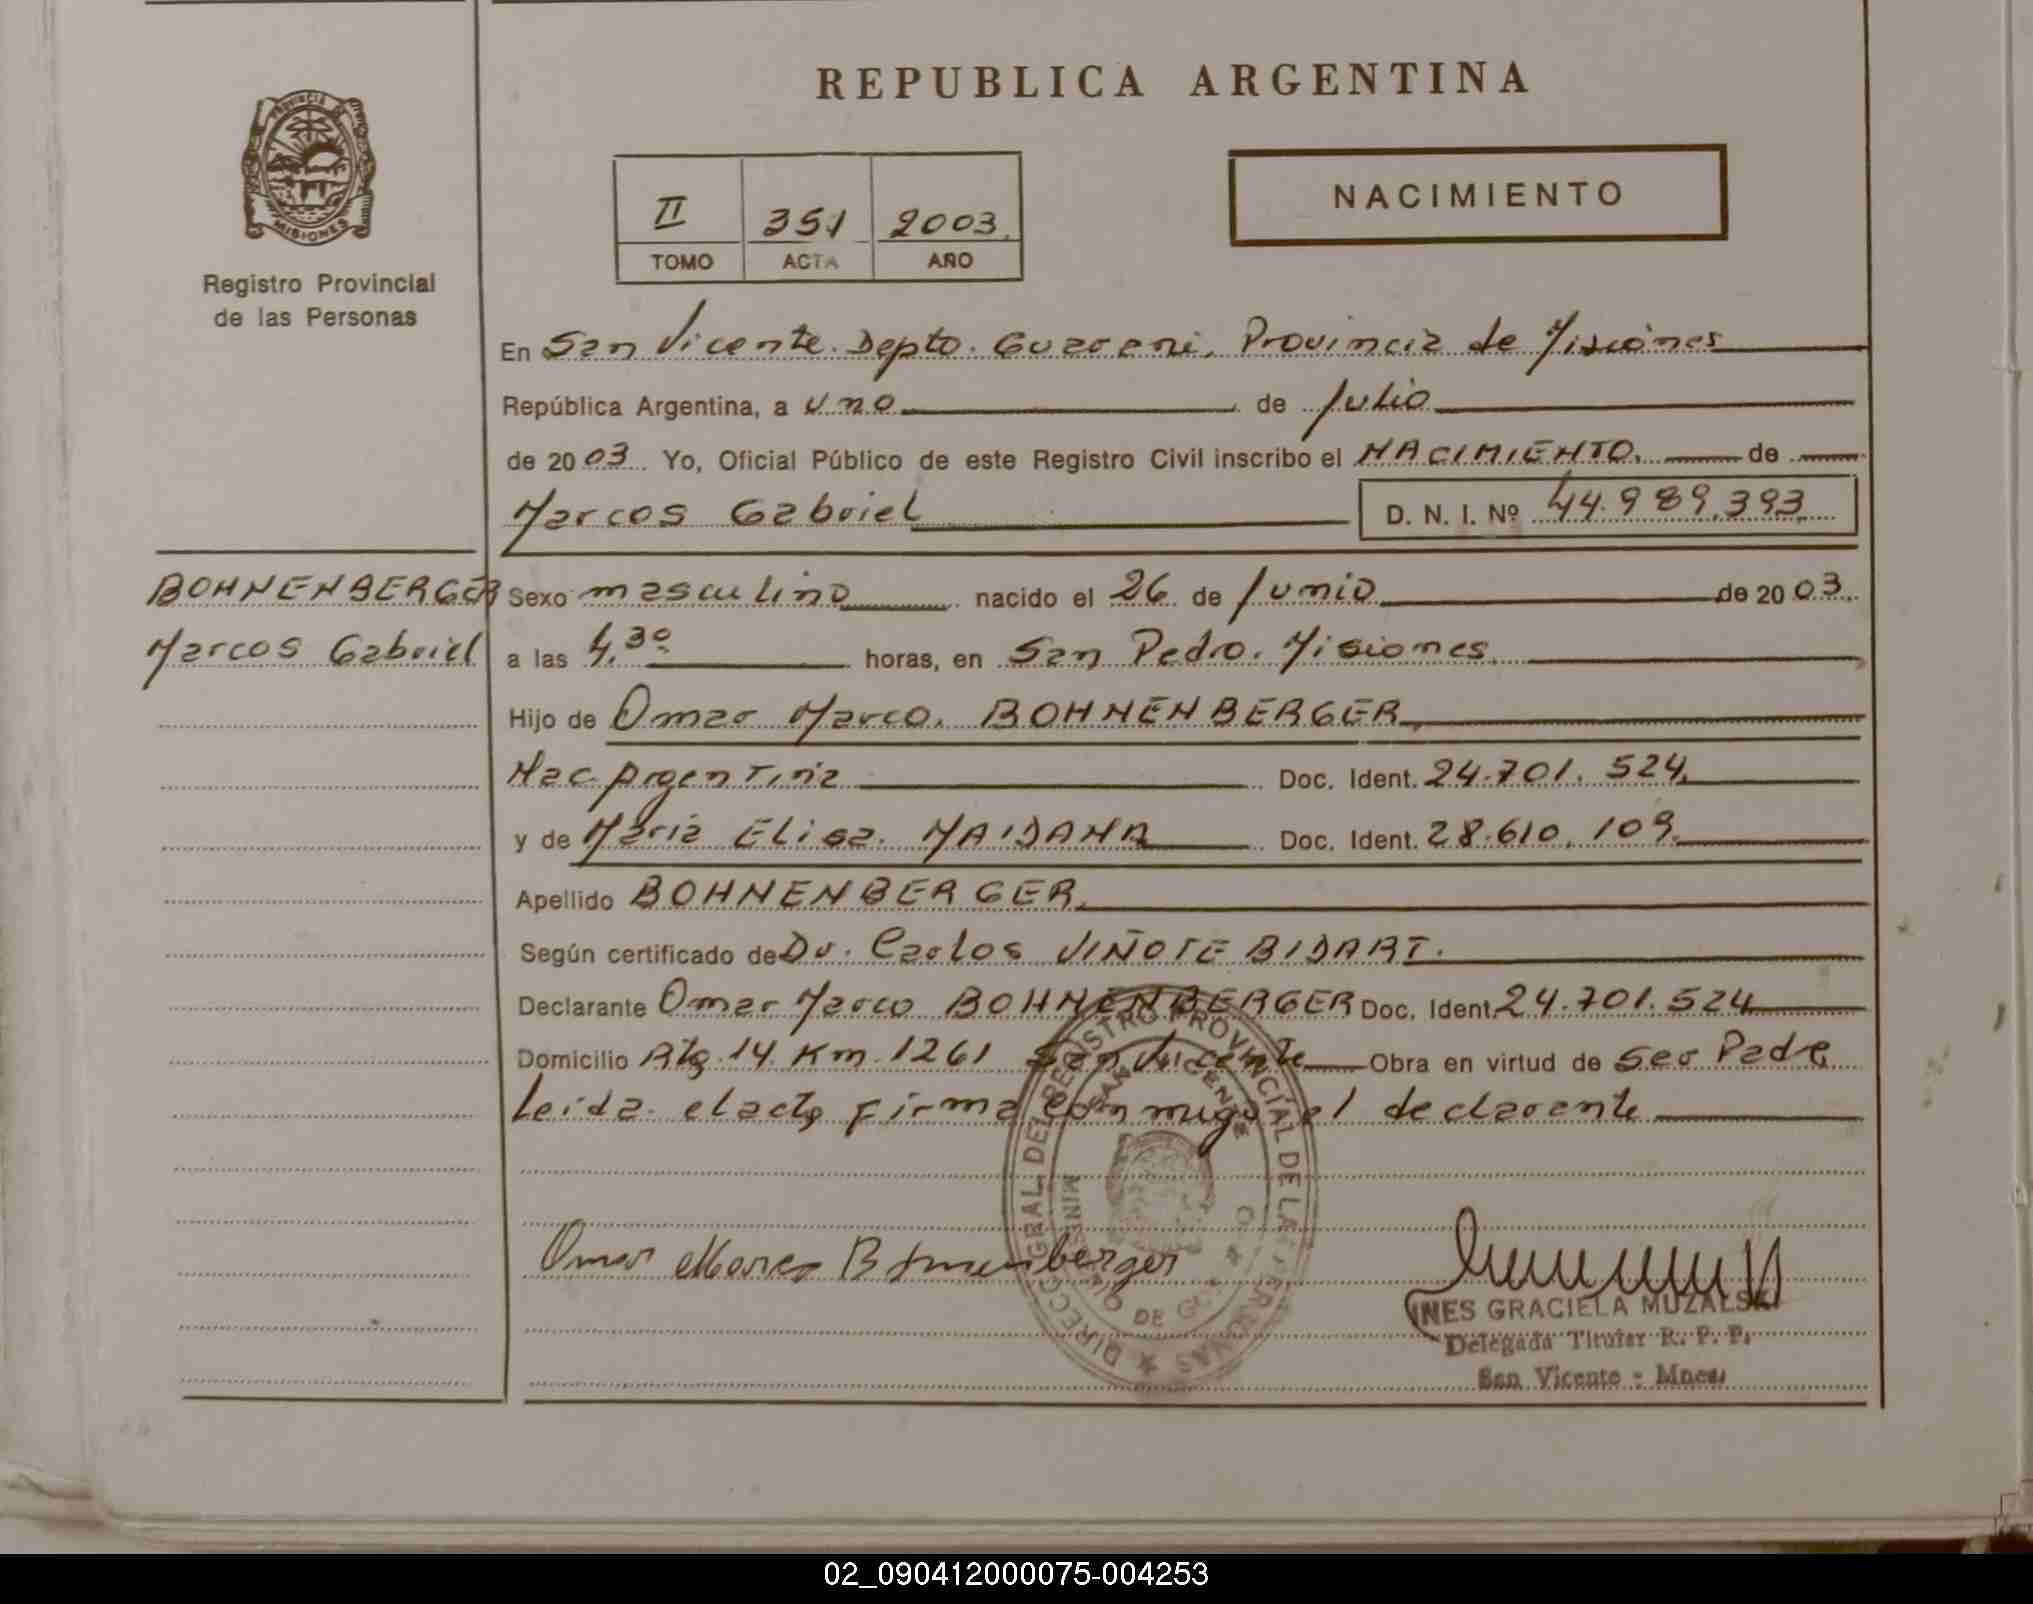 REPUBLICA ARGENTINA
PROVINCIA DE
MISIONES
Registro Provincial
de las Personas
II 351 2003
TOMO ACTA AÑO
NACIMIENTO
En San Vicente. Depto. Guarani, Provincia de Misiones
República Argentina, a uno de Julio
de 2003. Yo, Oficial Público de este Registro Civil inscribo el NACIMIENTO. de
Marcos Gabriel D. N. I. Nº 44.989.393
BOHNENBERGER
Marcos Gabriel
Sexo masculino nacido el 26 de Junio de 2003.
a las 4,30 horas, en San Pedro. Misiones
Hijo de Omar Marco. BOHNENBERGER
Nac. Argentina Doc. Ident. 24.701.524
y de Maria Elisa. MAIDANA Doc. Ident. 28.610.109
Apellido BOHNENBERGER
Según certificado de Dr. Carlos VIÑOTE BIDART.
Declarante Omar Marco BOHNENBERGER Doc. Ident. 24.701.524
Domicilio Rta. 14 Km. 1261 San Vicente Obra en virtud de ser Padre
Leida el acta, firma conmigo el declarante
DIRECC. GRAL. DEL REGISTRO PROVINCIAL DE LAS PERSONAS
SAN VICENTE
DE GOB.
Omar Marco Bohnenberger
INES GRACIELA MUZALSKI
Delegada Titular R. P. P.
San Vicente - Mnes.
02_090412000075-004253